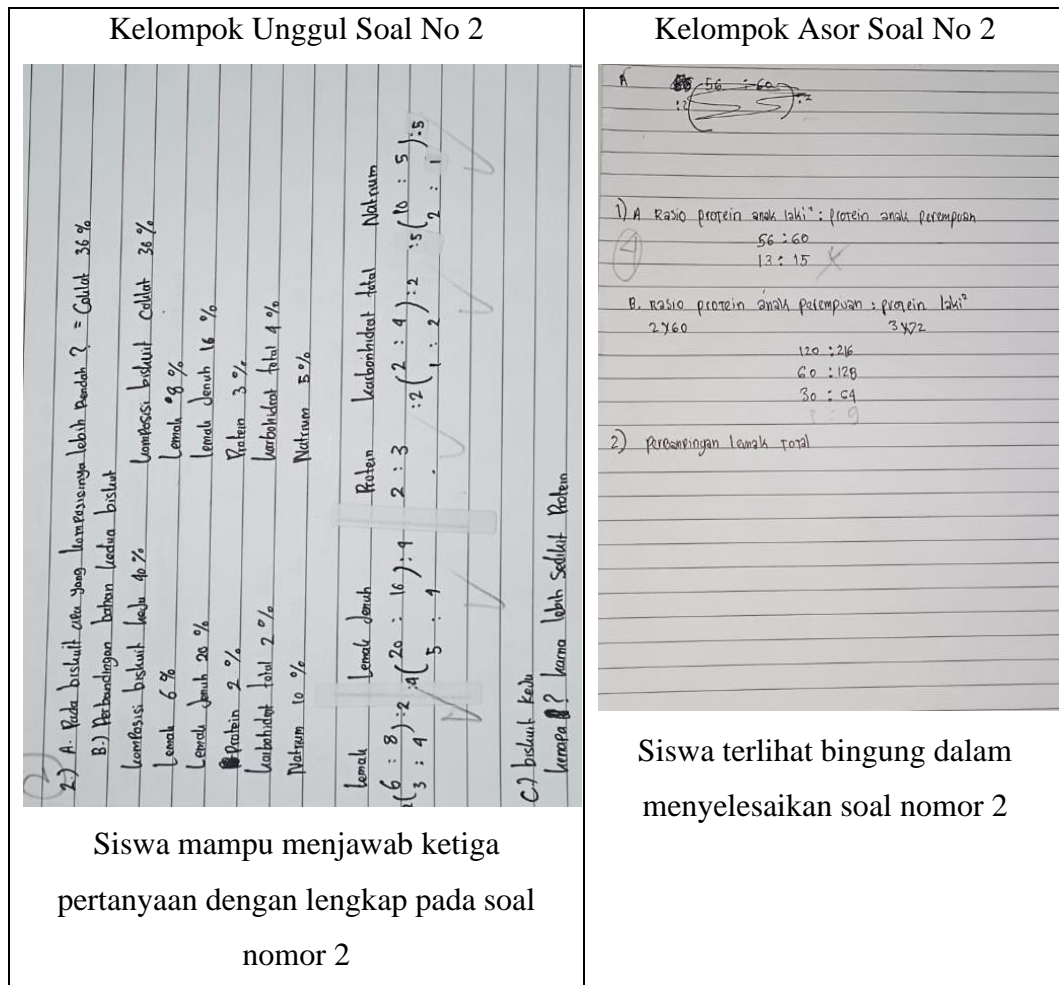 Kelompok Unggul Soal No 2
2.) A. Pada biskuit apa yang komposisinya lebih Rendah ? = Coklat 36 %
B.) Perbandingan bahan kedua biskuit
Komposisi biskuit keju 40 %
Lemak 6 %
Lemak Jenuh 20 %
Protein 2 %
Karbohidrat total 2 %
Natrium 10 %
Komposisi biskuit coklat 36 %
Lemak 8 %
Lemak Jenuh 16 %
Protein 3 %
Karbohidrat total 4 %
Natrium 5 %
Lemak Lemak Jenuh Protein Karbonhidrat total Natrium
:2(6 : 8):2 :4(20 : 16):4 2 : 3 :2(2 : 4):2 :5(10 : 5):5
3 : 4 5 : 4 1 : 2 2 : 1
C.) biskuit keju
kenapa ? karna lebih Sedikit Protein
Siswa mampu menjawab ketiga
pertanyaan dengan lengkap pada soal
nomor 2
Kelompok Asor Soal No 2
A 56 : 60
:2 :2
1) A Rasio protein anak laki² : protein anak perempuan
4
56 : 60
13 : 15
B. Rasio protein anak perempuan : protein laki²
2 x 60 3 x 72
120 : 216
60 : 128
30 : 64
2) Perbandingan lemak total
Siswa terlihat bingung dalam
menyelesaikan soal nomor 2